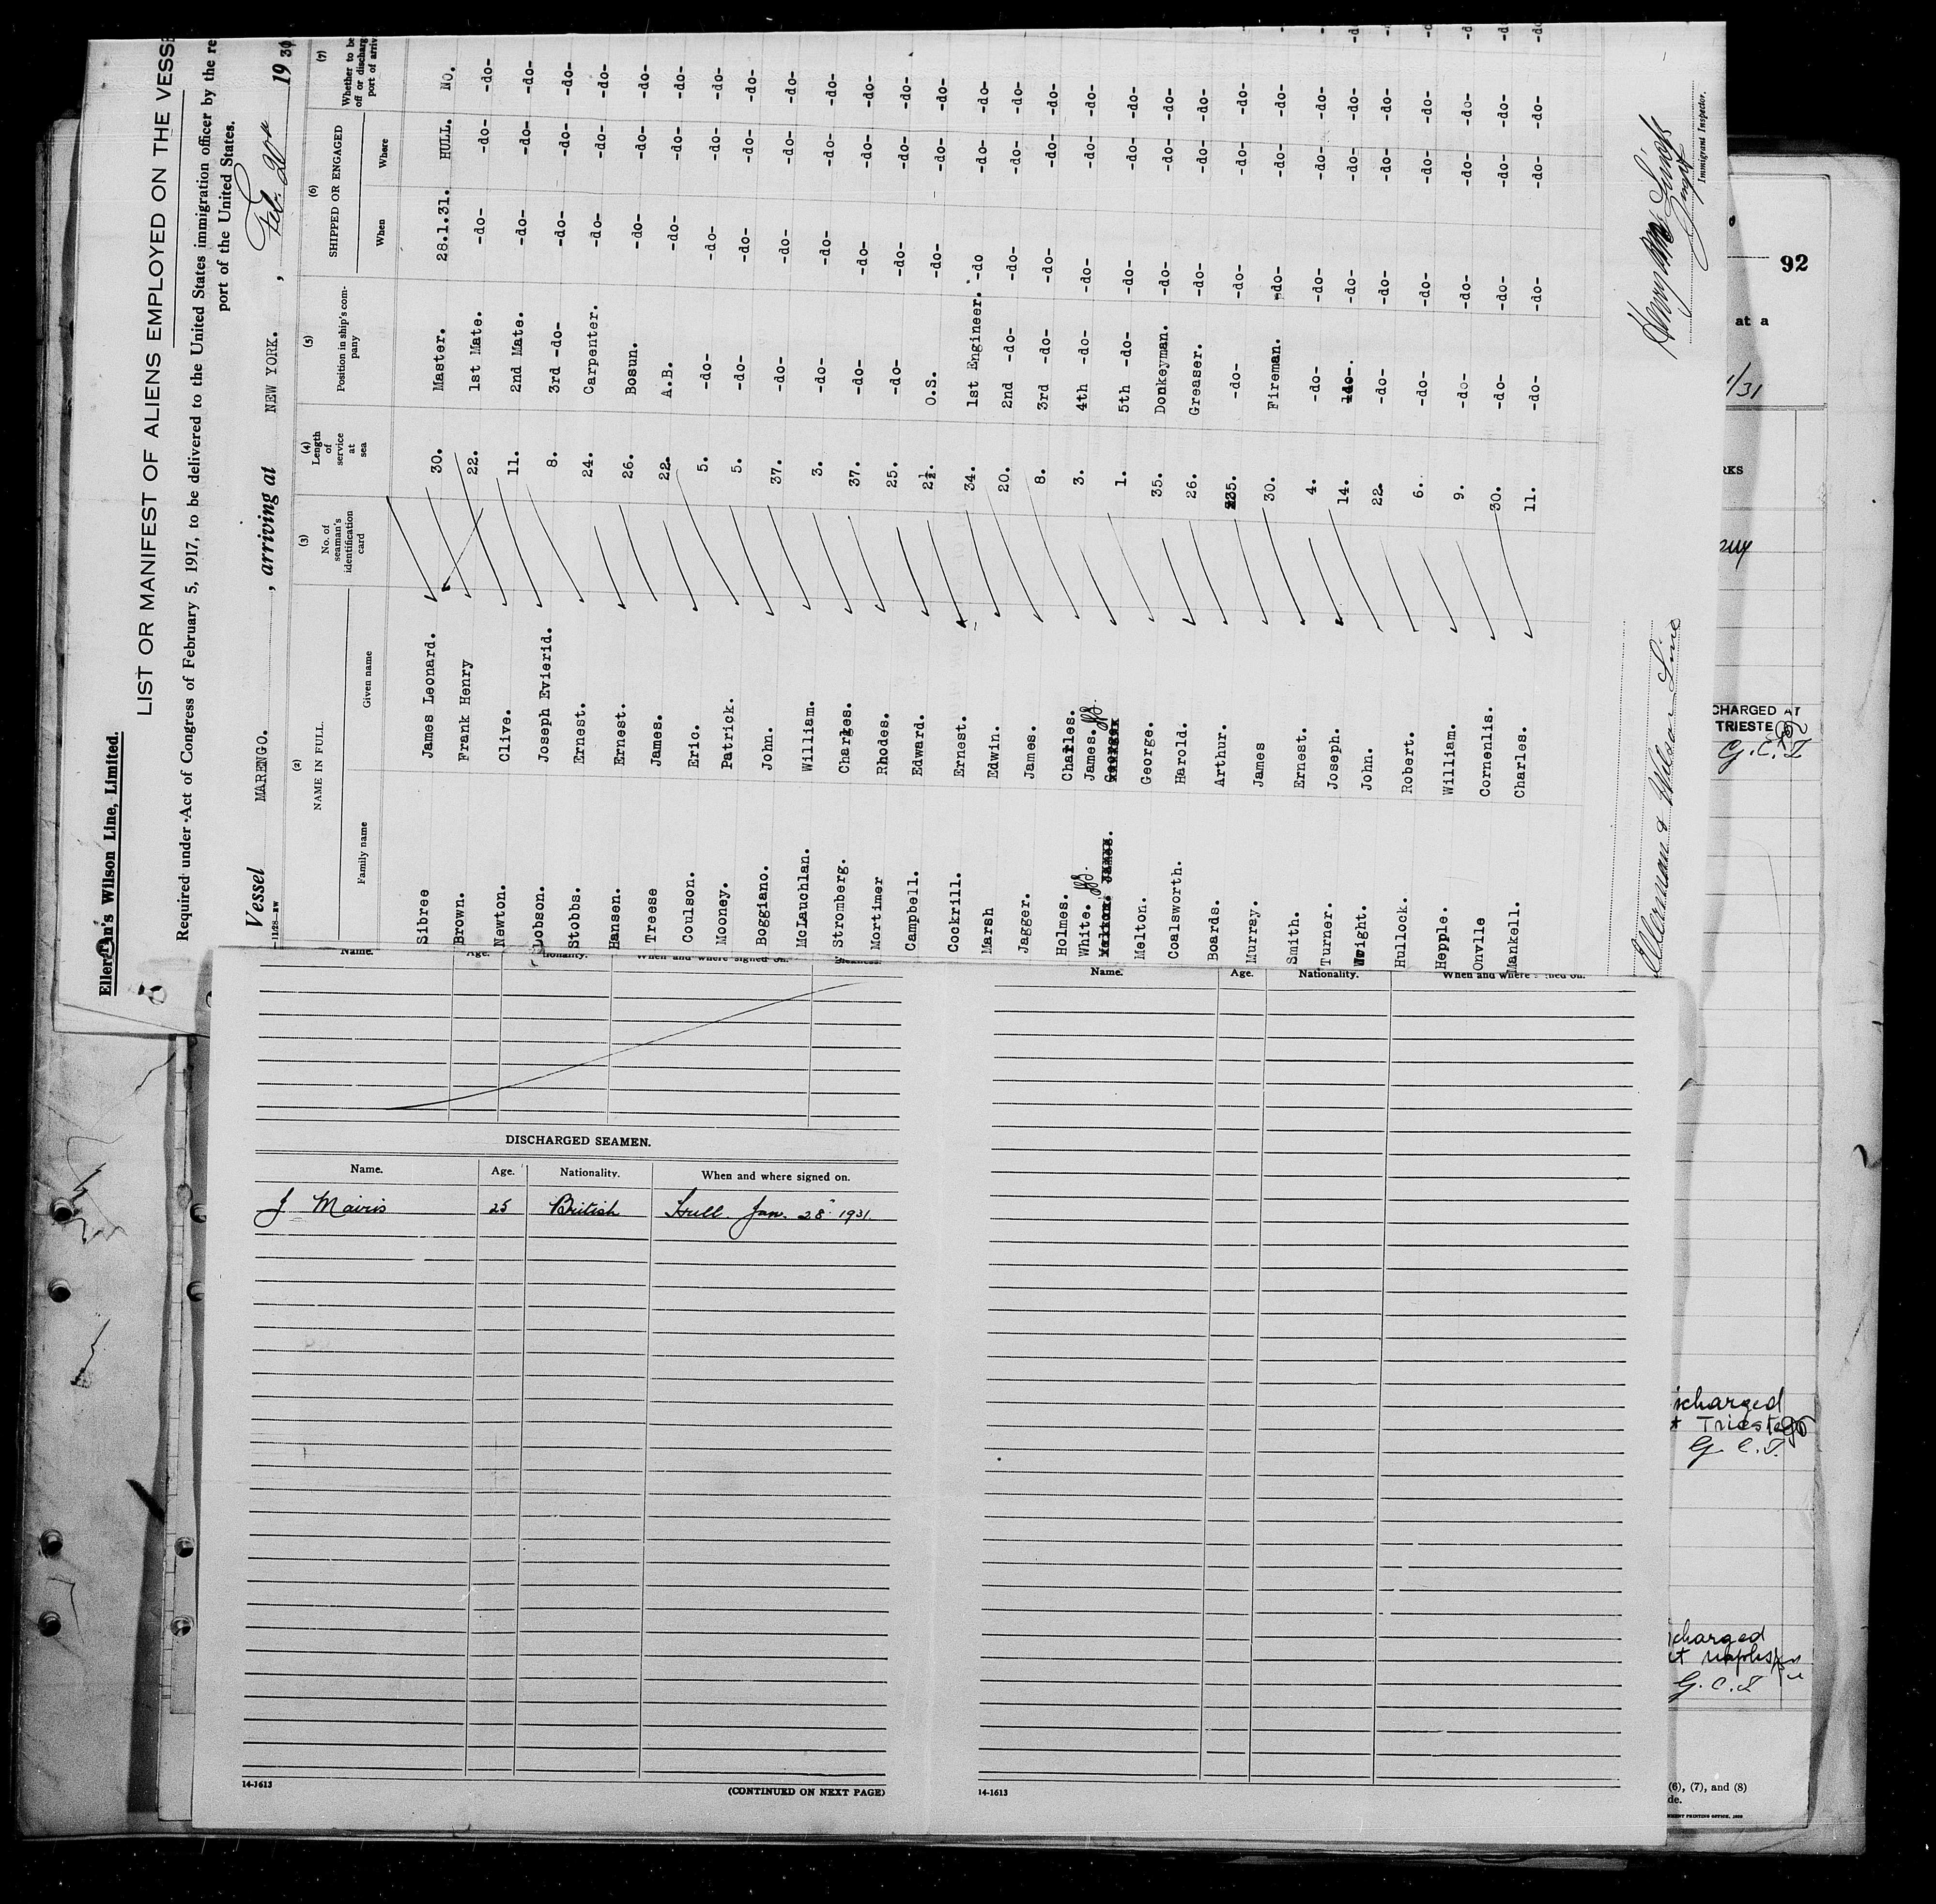 Ellerman's Wilson Line, Limited.
LIST OR MANIFEST OF ALIENS EMPLOYED ON THE VESSE
Required under Act of Congress of February 5, 1917, to be delivered to the United States immigration officer by the re
port of the United States.
Vessel MARENGO. , arriving at NEW YORK. , Feb 20 19 31
11/28—RW
(2) NAME IN FULL. (3) No. of seaman's identification card (4) Length of service at sea (5) Position in ship's company (6) SHIPPED OR ENGAGED (7) Whether to be off or discharg port of arriv
Family name Given name When Where
Sibree James Leonard. 30. Master. 28.1.31. HULL. No.
Brown. Frank Henry 22. 1st Mate. -do- -do- -do-
Newton. Clive. 11. 2nd Mate. -do- -do- -do-
Lobson. Joseph Evierid. 8. 3rd -do- -do- -do- -do-
Stobbs. Ernest. 24. Carpenter. -do- -do- -do-
Hansen. Ernest. 26. Bosun. -do- -do- -do-
Treese James. 22. A.B. -do- -do- -do-
Coulson. Eric. 5. -do- -do- -do- -do-
Mooney. Patrick. 5. -do- -do- -do- -do-
Boggiano. John. 37. -do- -do- -do- -do-
McLauchlan. William. 3. -do- -do- -do- -do-
Stromberg. Charles. 37. -do- -do- -do- -do-
Mortimer Rhodes. 25. -do- -do- -do- -do-
Campbell. Edward. 2½. O.S. -do- -do- -do-
Cockrill. Ernest. 34. 1st Engineer. -do -do- -do-
Marsh Edwin. 20. 2nd -do- -do- -do- -do-
Jagger. James. 8. 3rd -do- -do- -do- -do-
Holmes. Charles. 3. 4th -do- -do- -do- -do-
White. James.
Melton. George. 1. 5th -do- -do- -do- -do-
Coalsworth. Harold. 35. Donkeyman. -do- -do- -do-
Boards. Arthur. 26. Greaser. -do- -do- -do-
Murray. James 35. -do- -do- -do- -do-
Smith. Ernest. 30. Fireman. -do- -do- -do-
Turner. Joseph. 4. -do- -do- -do- -do-
Wright. John. 14. -do-. -do- -do- -do-
Hullock. Robert. 22. -do- -do- -do- -do-
Hepple. William. 6. -do- -do- -do- -do-
Onvlle Cornenlis. 9. -do- -do- -do- -do-
Mankell. Charles. 30. -do- -do- -do- -do-
11. -do- -do- -do- -do-
Ellerman & Wilson Line
Immigrant Inspector.
92
at a
/31
RKS
CHARGED AT
TRIESTE
G.C.I
scharged
Trieste
G.C.I.
charged
Naples
G.C.I
(6), (7), and (8)
de.
NMENT PRINTING OFFICE
Name. Age. Nationality. When and where signed on.
Name. Age. Nationality. When and where signed on.
DISCHARGED SEAMEN.
Name. Age. Nationality. When and where signed on.
J Mairis 25 British Hull. Jan. 28 1931.
14-1613
(CONTINUED ON NEXT PAGE)
14-1613